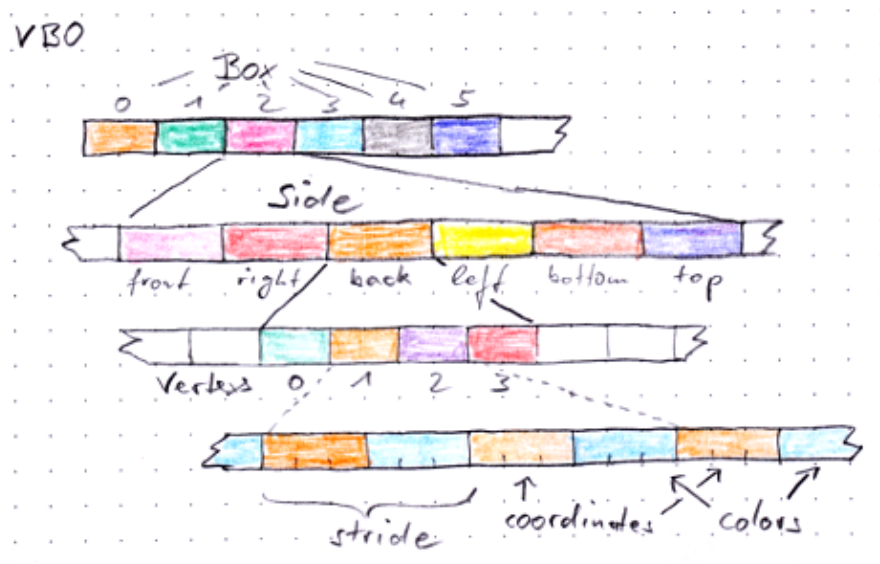 VBO
Box
0 1 2 3 4 5
Side
front right back left bottom top
Vertex 0 1 2 3
stride coordinates colors